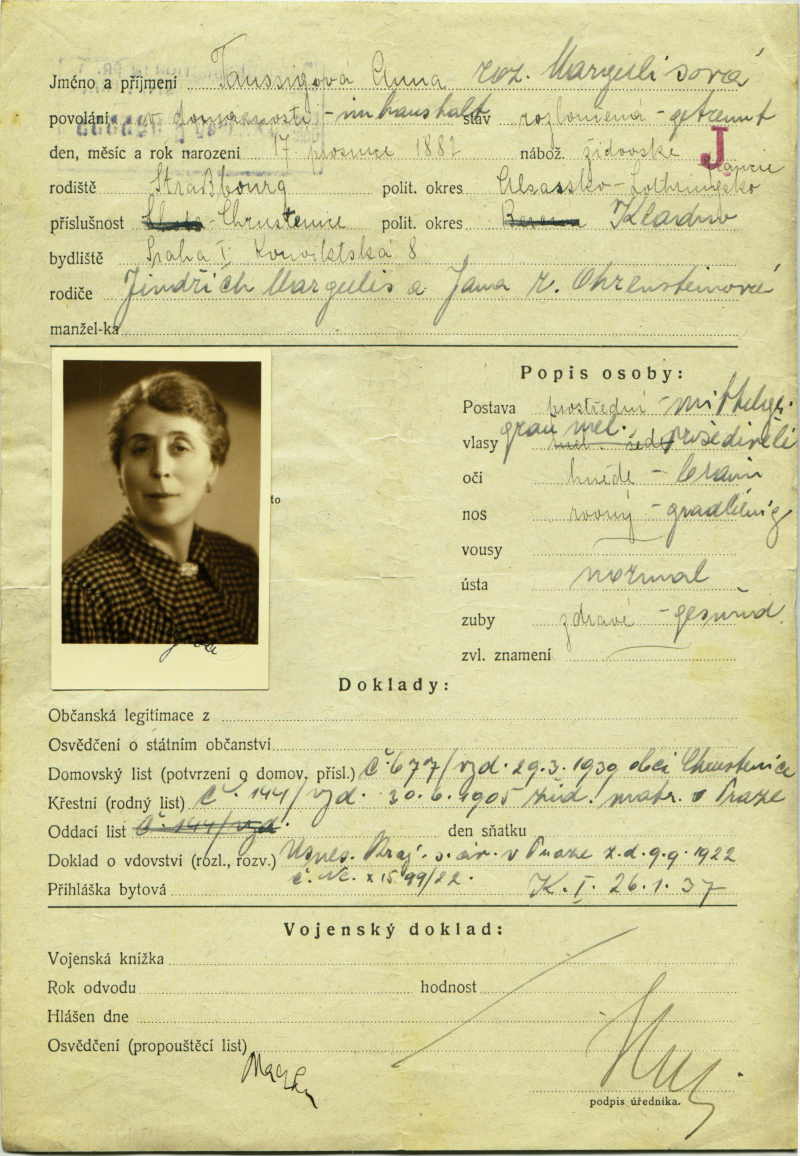 Jméno a příjmení Taussigová Anna roz. Margulisová
povolání v domácnosti - im Haushalt stav rozloučená - getrennt
den, měsíc a rok narození 17. prosince 1882 nábož. židovské J
rodiště Straßbourg polit. okres Alsassko-Lothrinsko Francie
příslušnost Chrustenice polit. okres Kladno
bydliště Praha I. Konviktská 8
rodiče Jindřich Margulis a Jana r. Ohrensteinová
manžel-ka
Popis osoby:
Postava prostřední - mittelgr.
vlasy grau mel. prošedivělé
oči hnědé - braun
to
nos rovný - gradlinig
vousy
ústa normal
zuby zdravé - gesund
zvl. znamení
Doklady:
Občanská legitimace z
Osvědčení o státním občanství
Domovský list (potvrzení o domov. přísl.) č. 677/vzd. 29.3.1939 obcí Chrustenice
Křestní (rodný list) č. 144/vzd. 30.6.1905 žid. matr. v Praze
Oddací list č. 144/vzd. den sňatku
Doklad o vdovství (rozl., rozv.) Usnes. Kraj. s. civ. v Praze z.d. 9.9.1922
č. Nc. x 1599/22.
Přihláška bytová K. I. 26.1.37
Vojenský doklad:
Vojenská knížka
Rok odvodu hodnost
Hlášen dne
Osvědčení (propouštěcí list)
podpis úředníka.